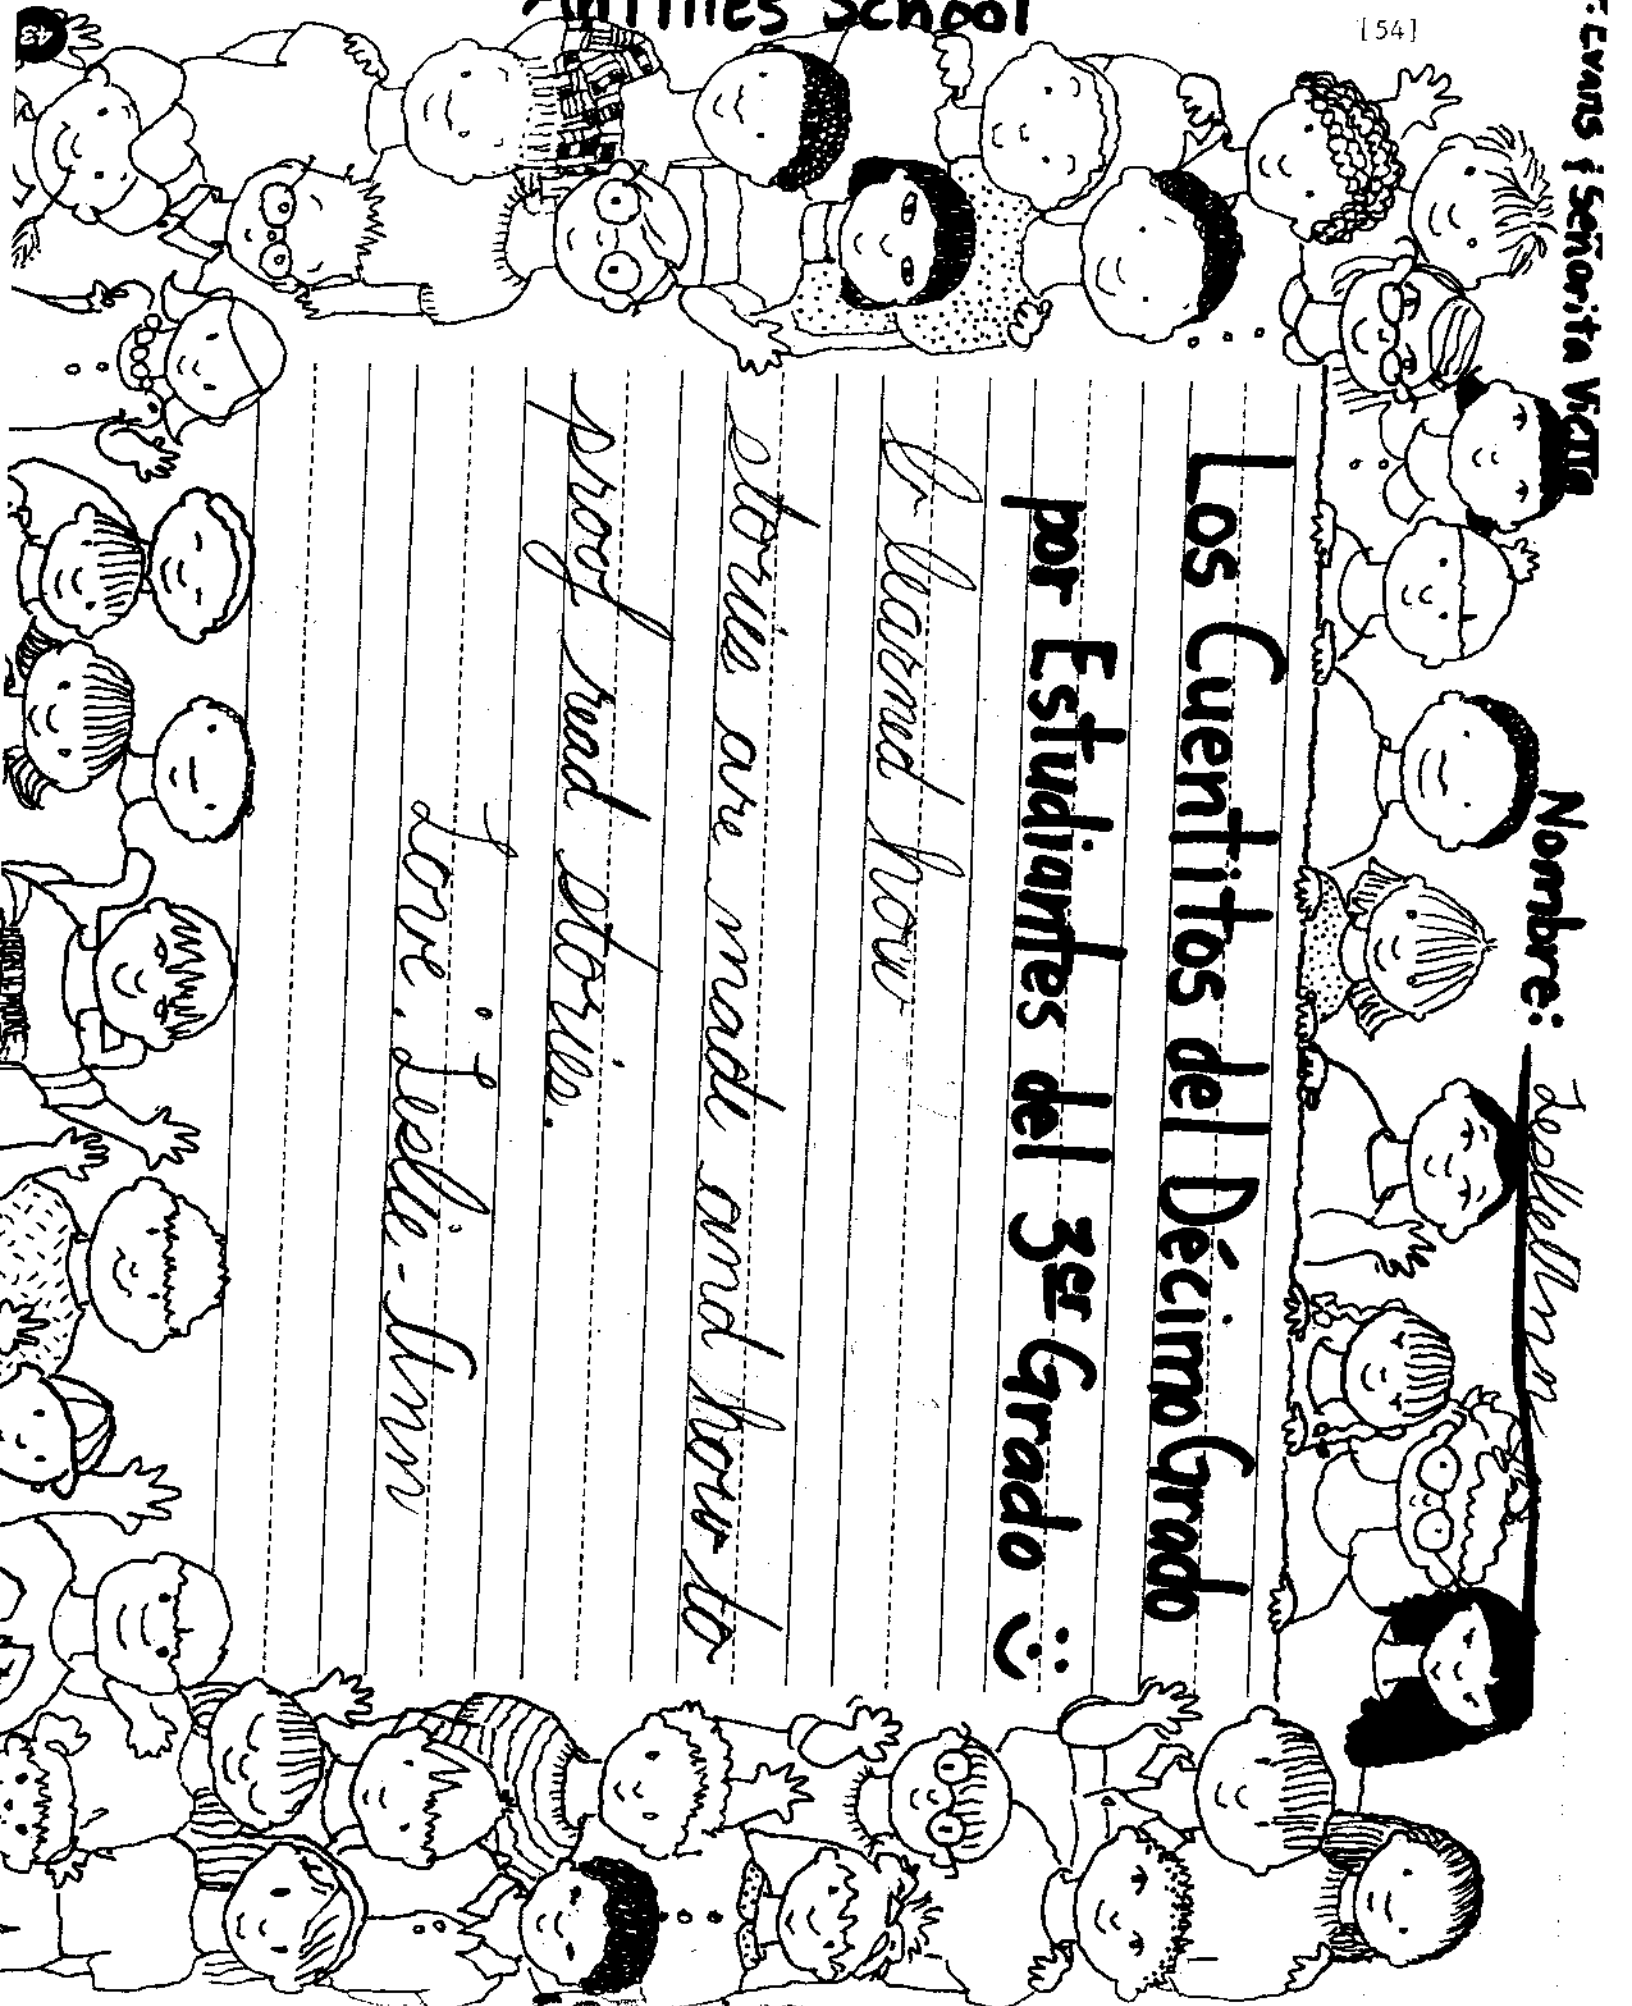 Antilles School
[54]
: Evans & Señorita Victta
Nombre: Leslie Ann
Los Cuentitos del Décimo Grado
por Estudiantes del 3er Grado :)
I learned how
stories are made and how to
proof read stories.
Love, Leslie-Ann
43